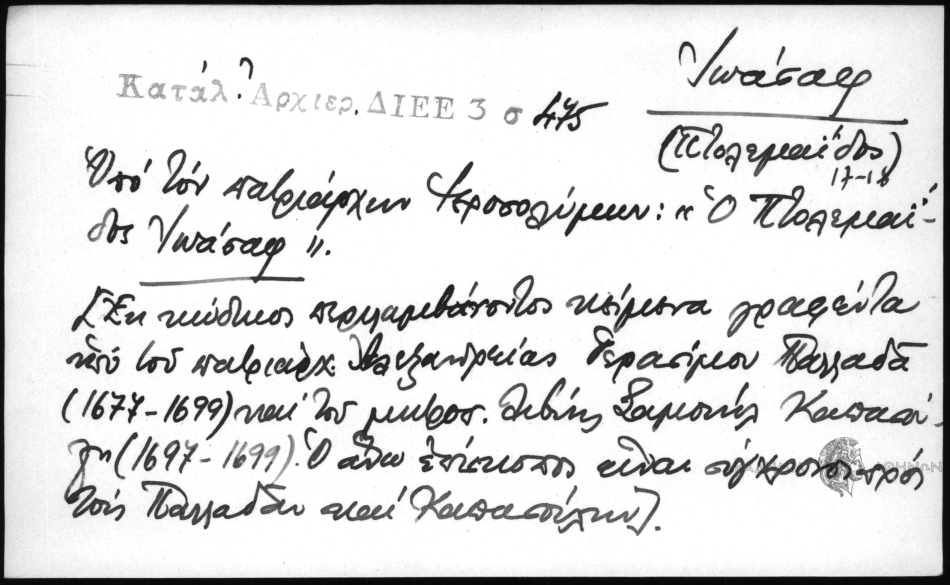 Ἰωάσαφ
Κατάλ. Ἀρχιερ. ΔΙΕΕ 3 σ 475
(Πτολεμαΐδος)
17-18
Ὑπό τόν πατριάρχην Ἱεροσολύμων: "Ὁ Πτολεμαΐ-
δος Ἰωάσαφ".
[Ἐκ κώδικος περιλαμβάνοντος κείμενα γραφέντα
ὑπό τοῦ πατριάρχ. Ἀλεξανδρείας Γερασίμου Παλλαδᾶ
(1677-1699) καί τοῦ μητροπ. Σαμουήλ Καπασού-
λη (1697-1699). Ὁ ἄνω ἐπίσκοπος εἶναι σύγχρονος πρός
τούς Παλλαδᾶν καί Καπασούλην].